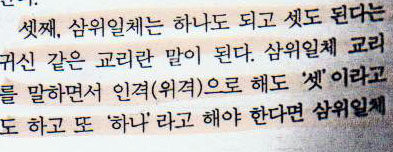 셋째, 삼위일체는 하나도 되고 셋도 된다는
귀신 같은 교리란 말이 된다. 삼위일체 교리
를 말하면서 인격(위격)으로 해도 '셋'이라고
도 하고 또 '하나'라고 해야 한다면 삼위일체